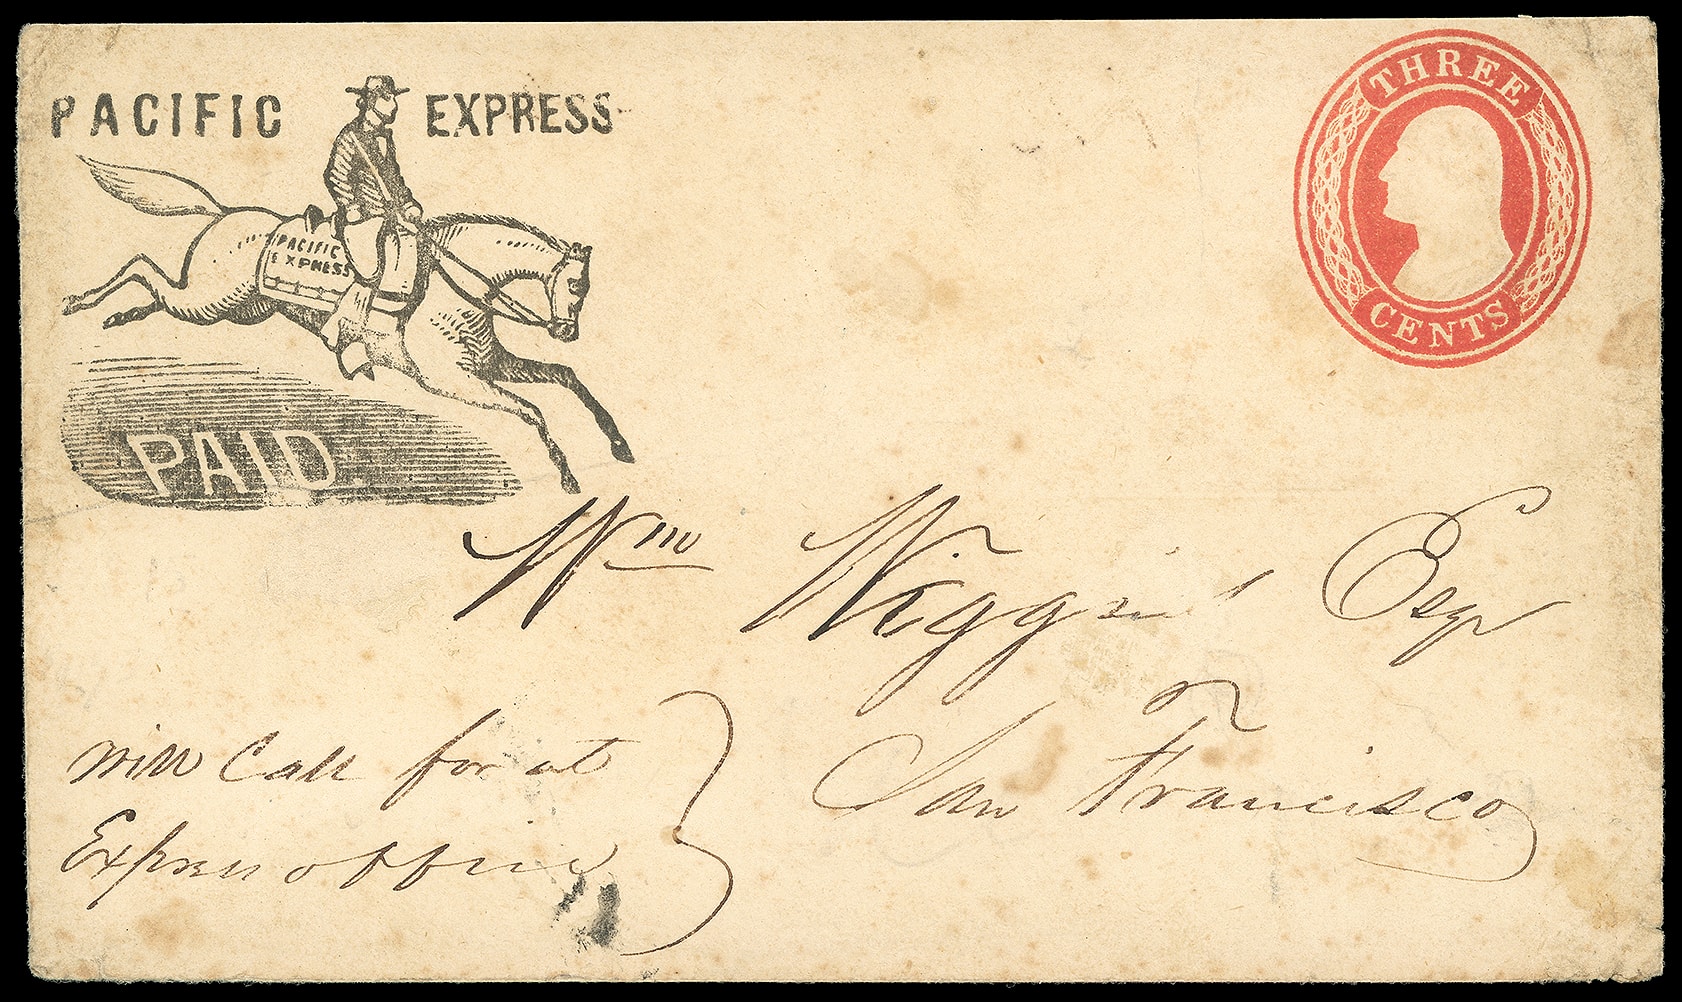 PACIFIC EXPRESS
PACIFIC
EXPRESS
PAID.
THREE
CENTS
Wm Wiggins Esqr
San Francisco
will Call for at
Express office